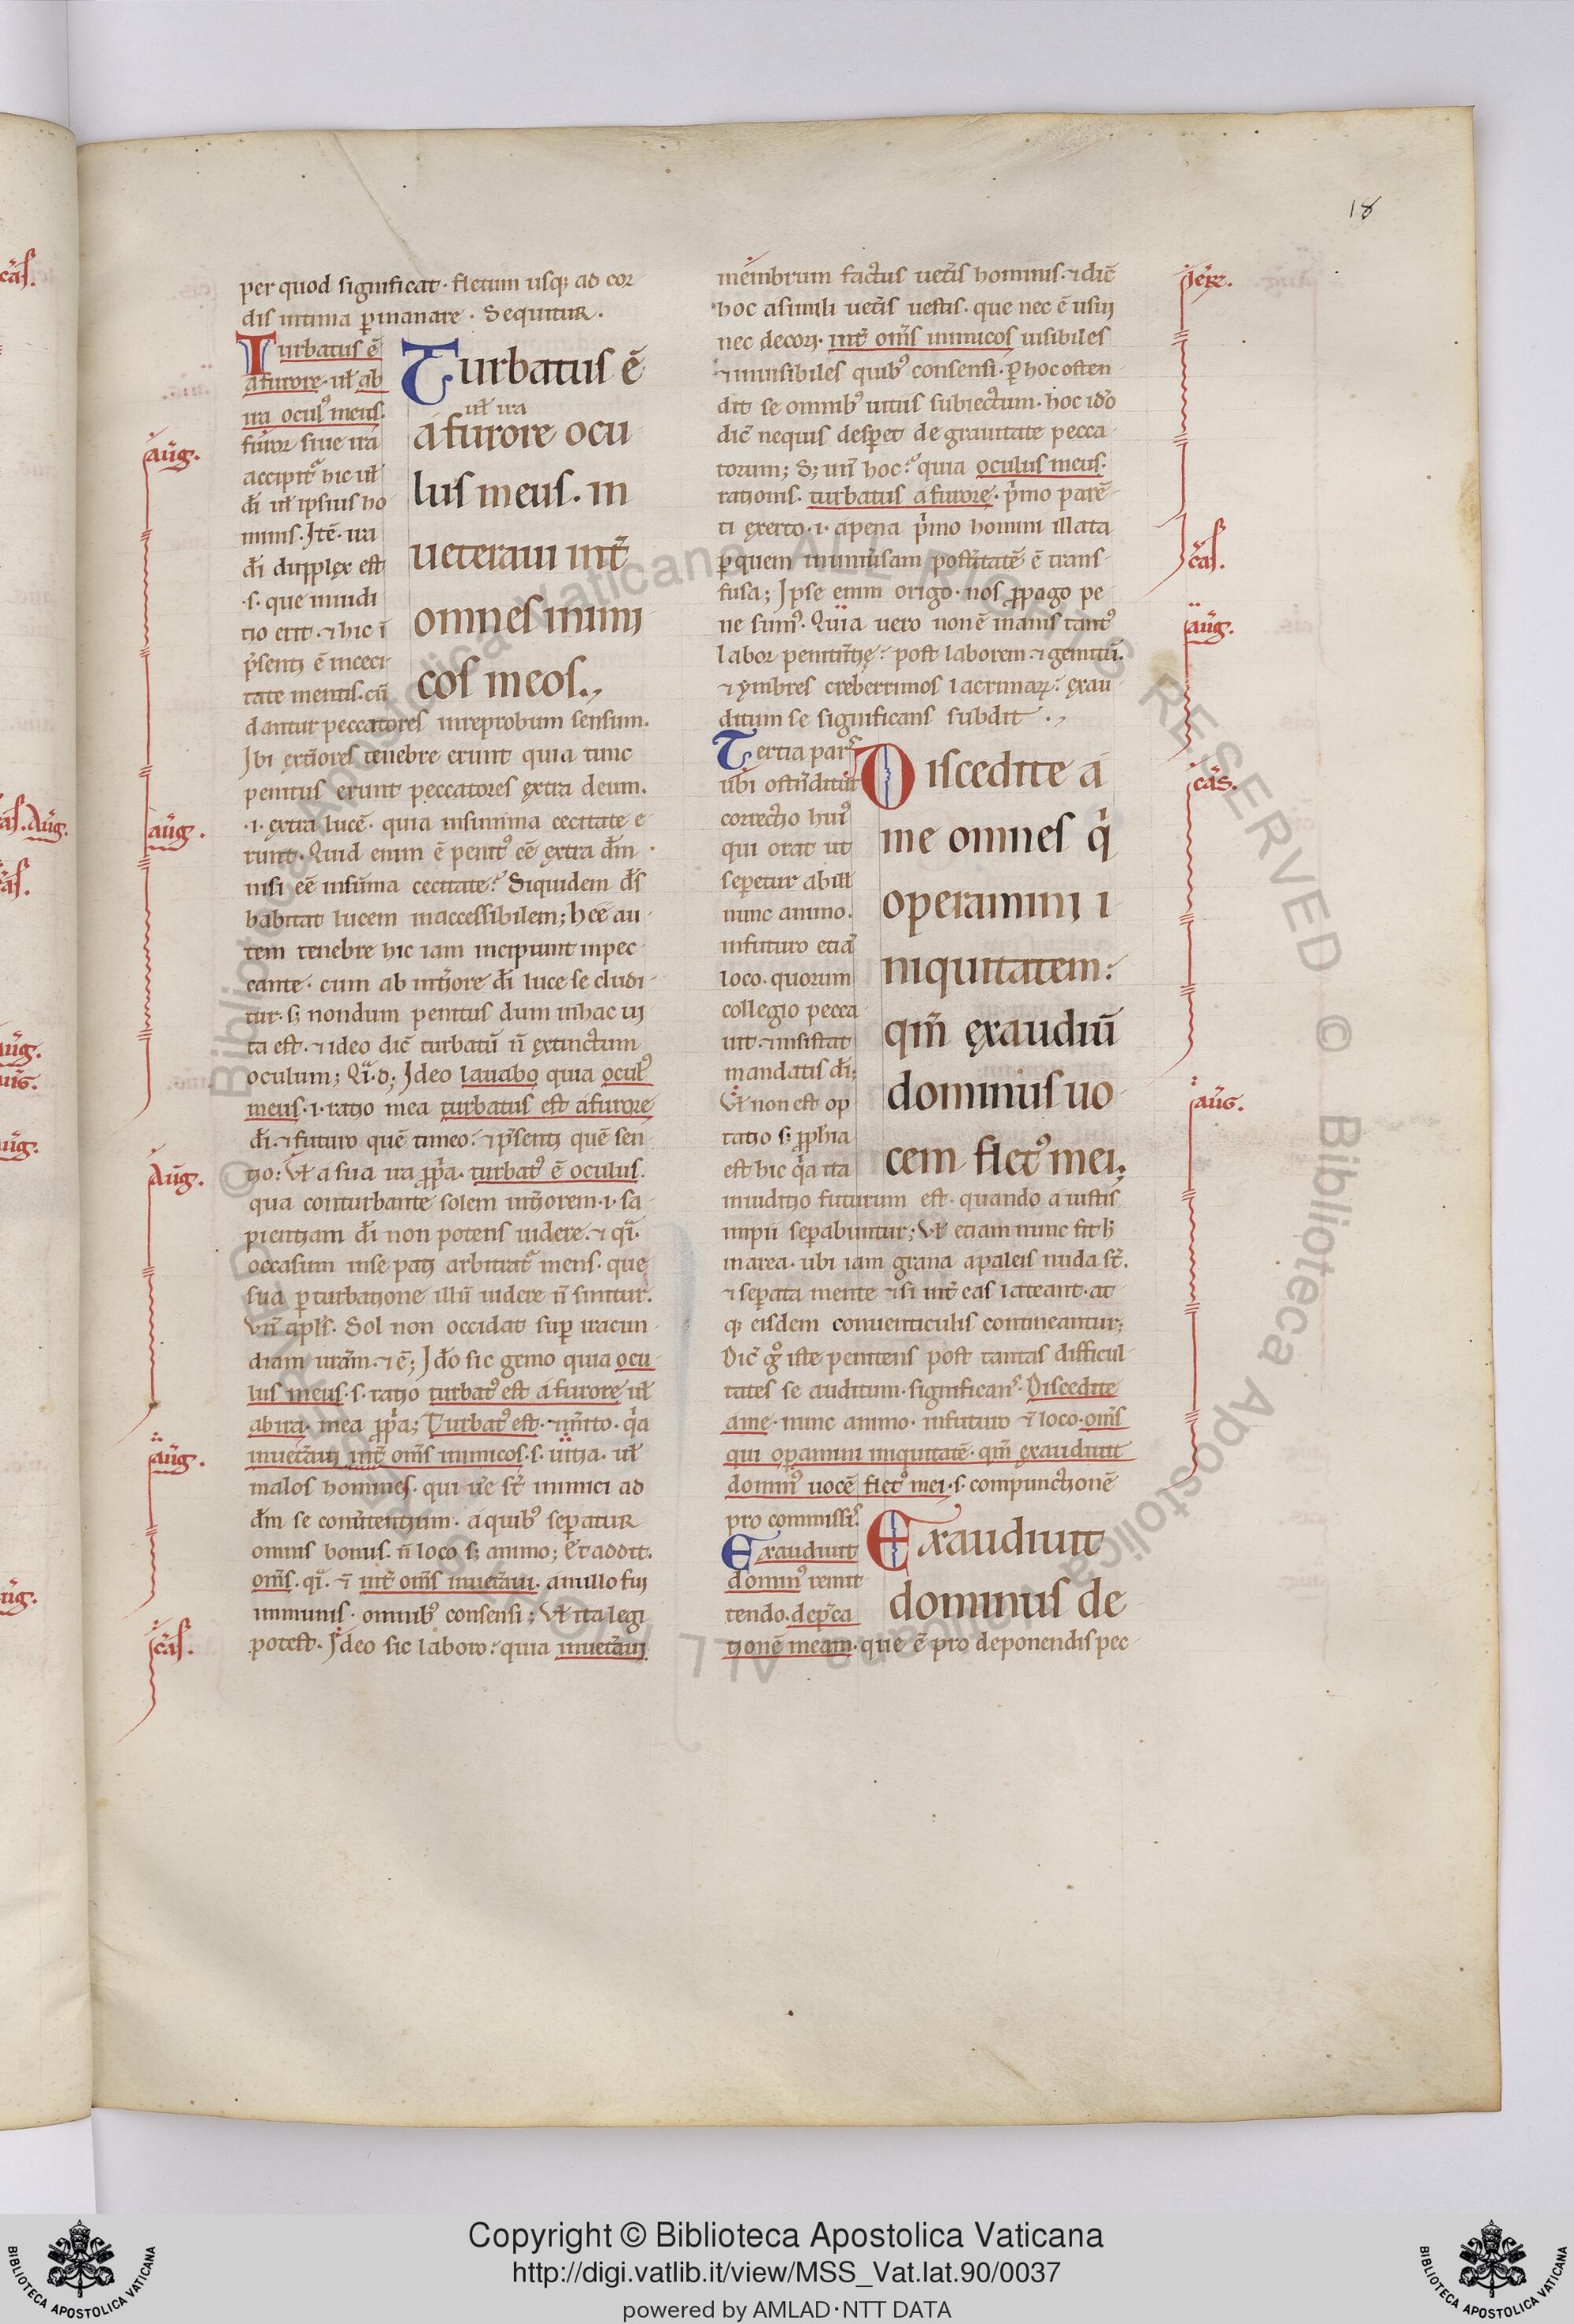 18
per quod significat· fletum usq; ad cor
dis intima ꝑmanare· Sequitur·
Turbatus ē
a furore· uł ab
ira oculꝰ meus·
furor siue ira
accipit᷑ hic uł
dī uł ipsius ho
minis. Itē· ira
dī dupplex est
·s· que iudi
tio erit· ⁊ hic ī
p̄senti ē in ceci
tate mentis· cū
Turbatus ē
uł ira
a furore ocu
lus meus. in
ueteraui int̄
omnes inimi
cos meos.,
dantur peccatores in reprobum sensum.
Ibi ext̄iores tenebre erunt quia tunc
penitus erunt peccatores extra deum.
·i· extra lucē· quia in summa cecitate e
runt· Quid enim ē penitꝰ eē extra dm̄
nisi eē in sūma cecitate? Siquidem ds̄
habitat lucem inaccessibilem; hee au
tem tenebre hic iam incipiunt in pec
cante· cum ab int̄iore dī luce se cludi
tur· s; nondum penitus dum in hac ui
ta est· ⁊ ideo dic̄ turbatū n̄ extinctum
oculum; Qī·d; Ideo lauabo quia oculꝰ
meus·i·ratio mea turbatus est a furore
dī· ⁊ futuro quē timeo· ⁊ p̄senti quē sen
tio: Vł a sua ira ꝓp̄a· turbatꝰ ē oculus·
qua conturbante solem int̄iorem·i·sa
pientiam dī non potens uidere· ⁊ qī·
occasum in se pati arbitrat᷑ mens· que
sua ꝑturbatione illū uidere n̄ sinitur.
Vn̄ apl̄s· Sol non occidat sup iracun
diam urām· ⁊ c̄; Ido sic gemo quia ocu
lus meus·s·ratio turbatꝰ est a furore uł
ab ira· mea ꝓp̄a; Turbatꝰ est· ⁊ m̄ito· q̄a
inuet̄aui int̄ om̄s inimicos·s· uitia· uł
malos homines· qui ue st̄ inimici ad
dm̄ se conūtentium· a quibꝰ sepatur
omnis bonus· n̄ loco s; animo; Et addit.
om̄s· qī· ⁊ int̄ om̄s inuet̄aui· a nullo fui
immunis· omnibꝰ consensi; Vł ita legi
potest· Ideo sic laboro: quia inuet̄aui
aug.
aug.
Aug.
aug.
cas.
membrum factus uet̄is hominis· ⁊ dic̄
hoc a simili uet̄is uestis· que nec ē usui
nec decori· int̄ om̄s inimicos uisibiles
⁊ inuisibiles quibꝰ consensi· ꝑ hoc osten
dit se omnibꝰ uitiis subiectum· hoc ido
dic̄ nequis despet de grauitate pecca
torum; S; un̄ hoc? quia oculus meus·
rationis· turbatus a furore· p̄mo parē
ti exerto·i· a pena p̄mo homini illata
ꝑ quem in uniūsam postitatē ē trans
fusa; Ipse enim origo· nos ꝓpago pe
ne sumꝰ· Quia uero non ē inanis tantꝰ
labor penitn̄tie: post laborem· ⁊ gemitū.
⁊ ymbres creberrimos lacrimaꝝ: exau
ditum se significans subdit·,
Tertia pars
ubi ostn̄ditur
correctio huiꝰ
qui orat ut
sepetur ab ill
nunc animo.
in futuro etiā
loco· quorum
collegio pecca
uit· ⁊ insistat
mandatis dī;
Vł non est op
tatio s; ꝓphia
est hic q̄a ita
Discedite a
me omnes q̄
operamini i
niquitatem:
qm̄ exaudiū
dominus uo
cem fletꝰ mei;
in iuditio futurum est· quando a iustis
impii sepabuntur; Vł etiam nunc fit h̄
in area· ubi iam grana a paleis nuda st̄.
⁊ sepata mente ⁊ si int̄ eas lateant· at
q; eisdem conuenticulis contineantur;
Dic̄ g̊ iste penitens post tantas difficul
tates se auditum· significans· Discedite
a me· nunc animo· in futuro ⁊ loco· om̄s
qui opamini iniquitatē· qm̄ exaudiuit
dominꝰ uocē fletꝰ mei·s· compunctionē
pro commissis
Exaudiuit
dominꝰ remit
tendo· dep̄ca
Exaudiuit
dominus de
tionē meam· que ē pro deponendis pec
Ier.
cas.
aug.
cas.
aug.
cas.
as. Aug.
as.
aug.
aug.
aug.
aug.
© Biblioteca Apostolica Vaticana ALL RIGHTS RESERVED © Biblioteca Apostolica Vaticana ALL RIGHTS RESERVED
Copyright © Biblioteca Apostolica Vaticana
http://digi.vatlib.it/view/MSS_Vat.lat.90/0037
powered by AMLAD·NTT DATA
BIBLIOTECA APOSTOLICA VATICANA
BIBLIOTECA APOSTOLICA VATICANA